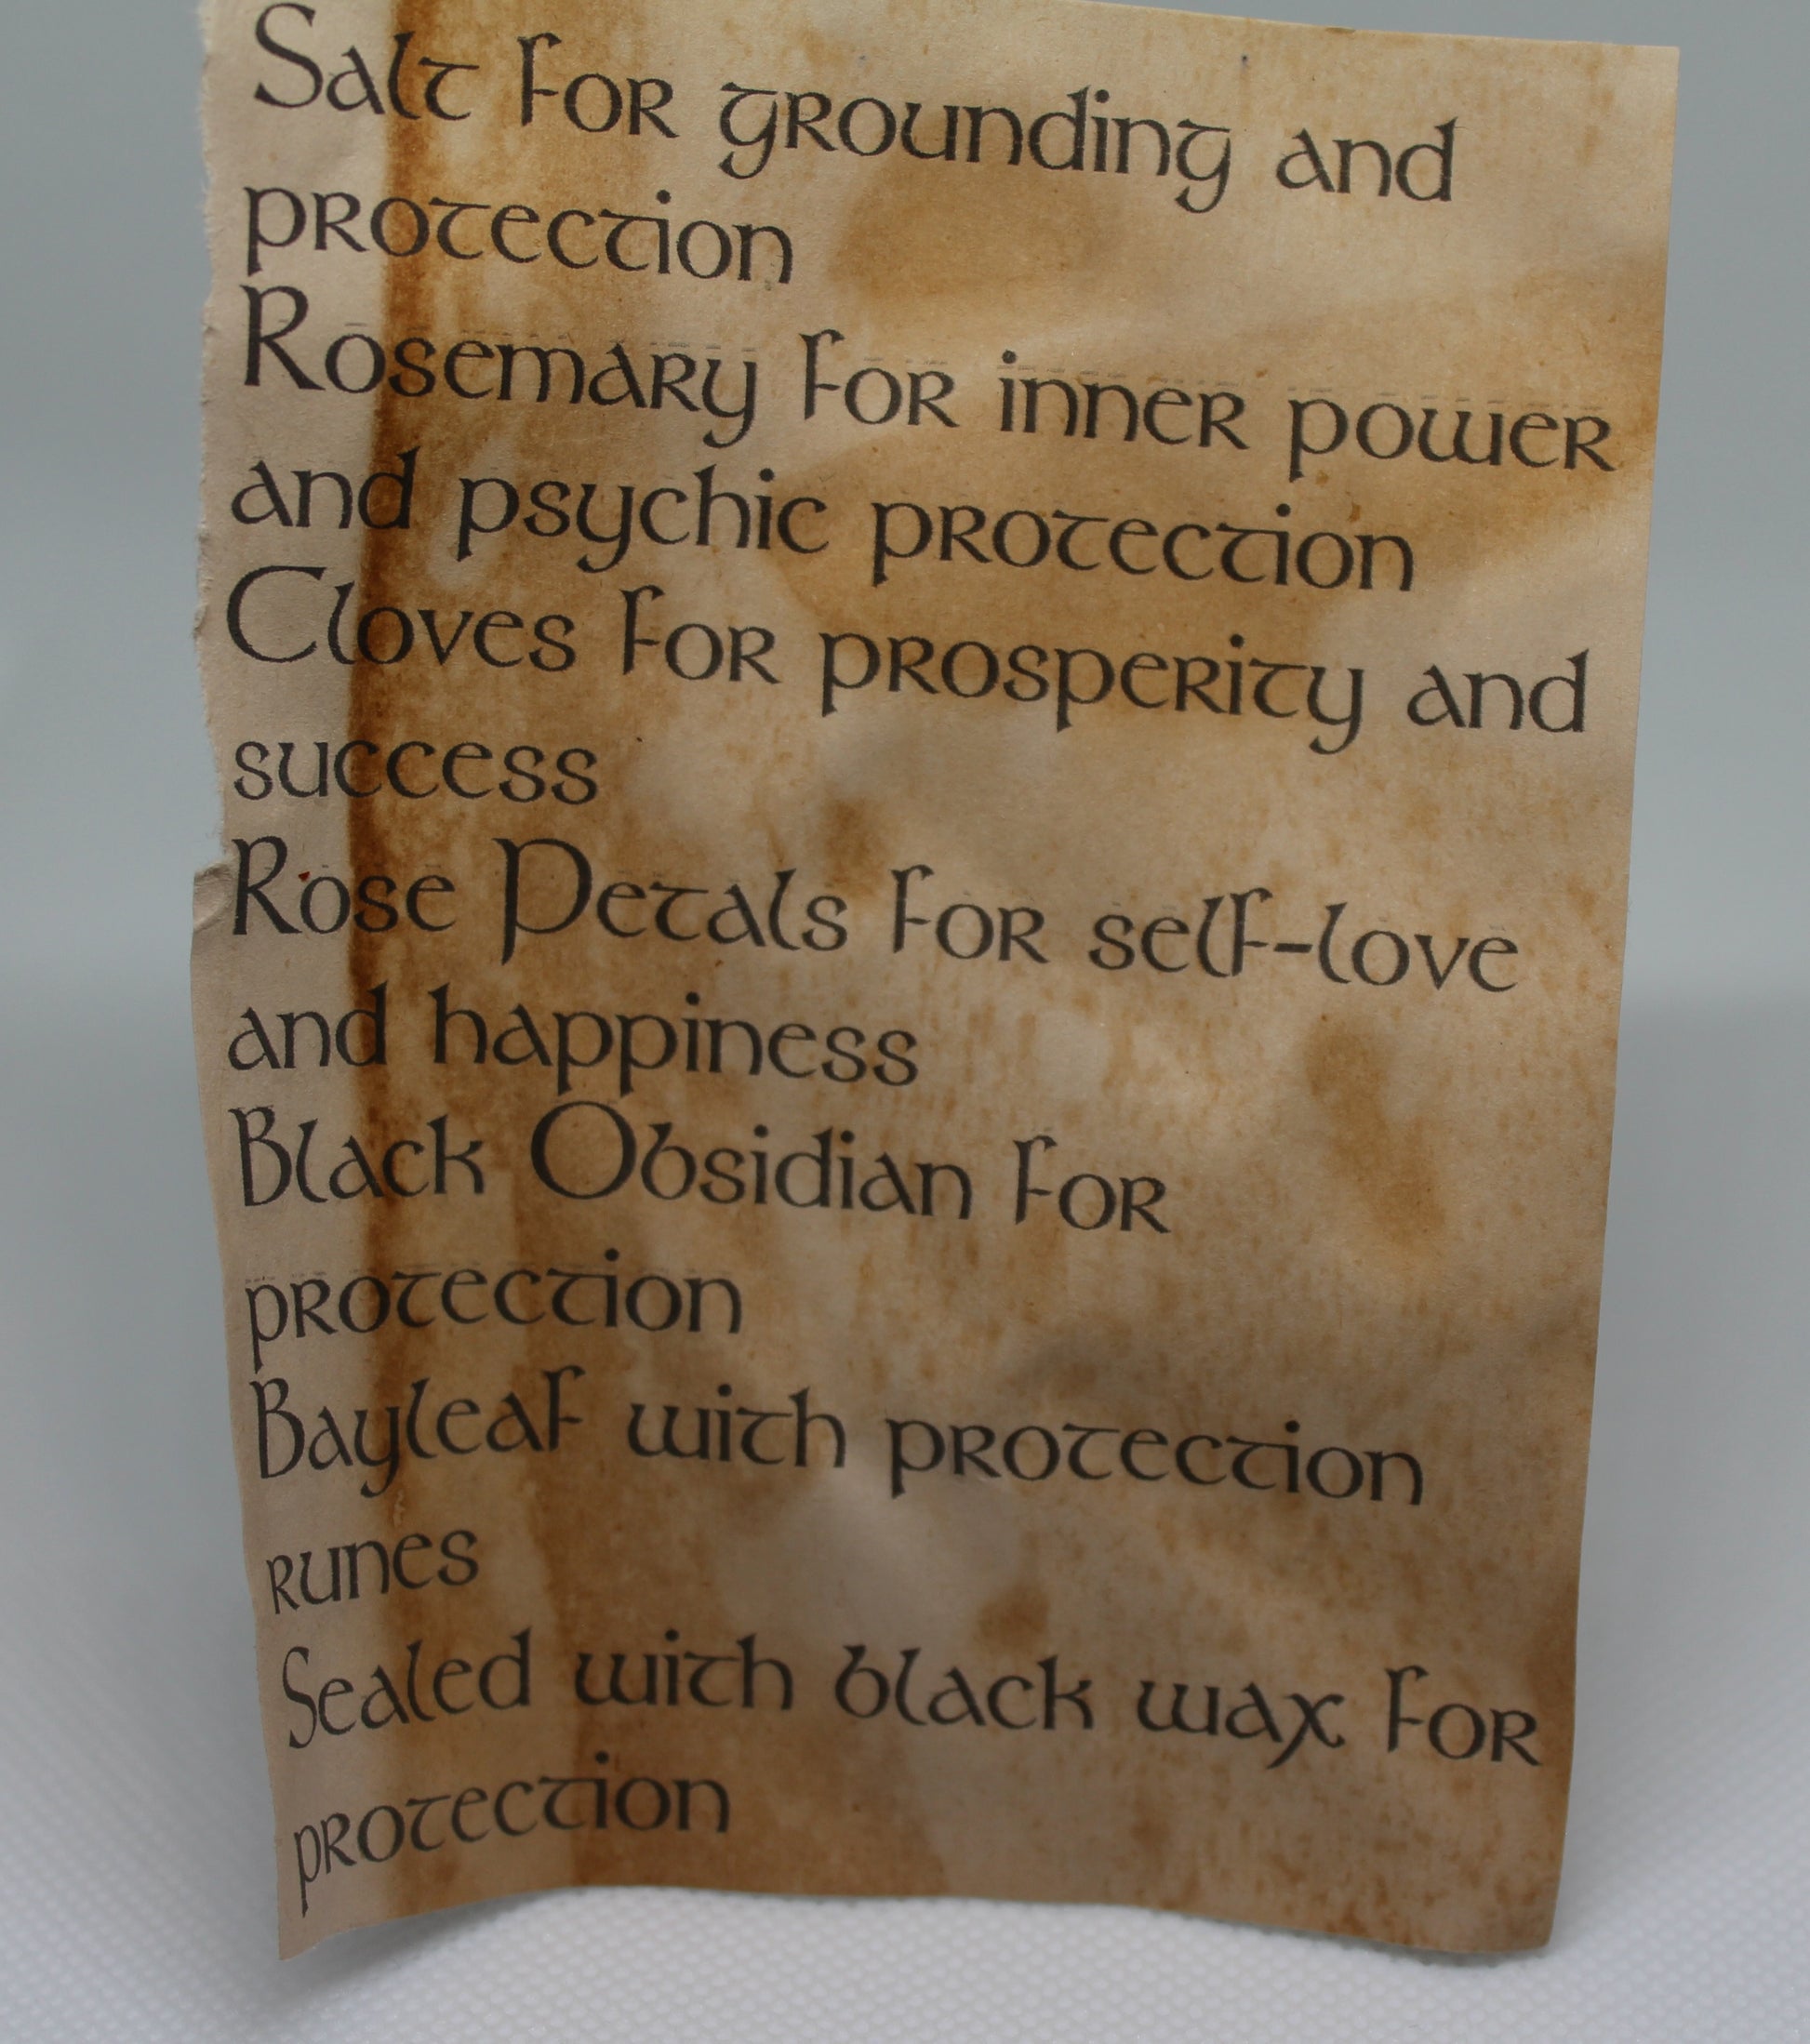 Salt for grounding and
protection
Rosemary for inner power
and psychic protection
Cloves for prosperity and
success
Rose Petals for self-love
and happiness
Black Obsidian for
protection
Bayleaf with protection
runes
Sealed with black wax for
protection